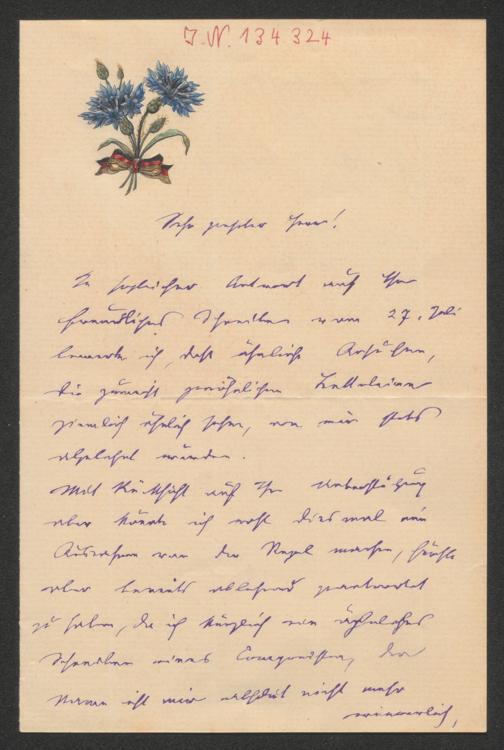 J. N. 134 324
Sehr geehrter Herr!
In sogleicher Antwort auf Ihr
freundliches Schreiben vom 27. Juli
bemerke ich, daß ähnliche Ansuchen,
die zumeist gewöhnlichen Betteleien
ziemlich ähnlich sehen, von mir stets
abgelehnt wurden.
Mit Rücksicht auf Ihre Unterstützung
aber könnte ich wohl diesmal eine
Ausnahme von der Regel machen, fürchte
aber bereits ablehnend geantwortet
zu haben, da ich kürzlich ein ähnliches
Schreiben eines Componisten, der
Name ist mir absolut nicht mehr
erinnerlich,